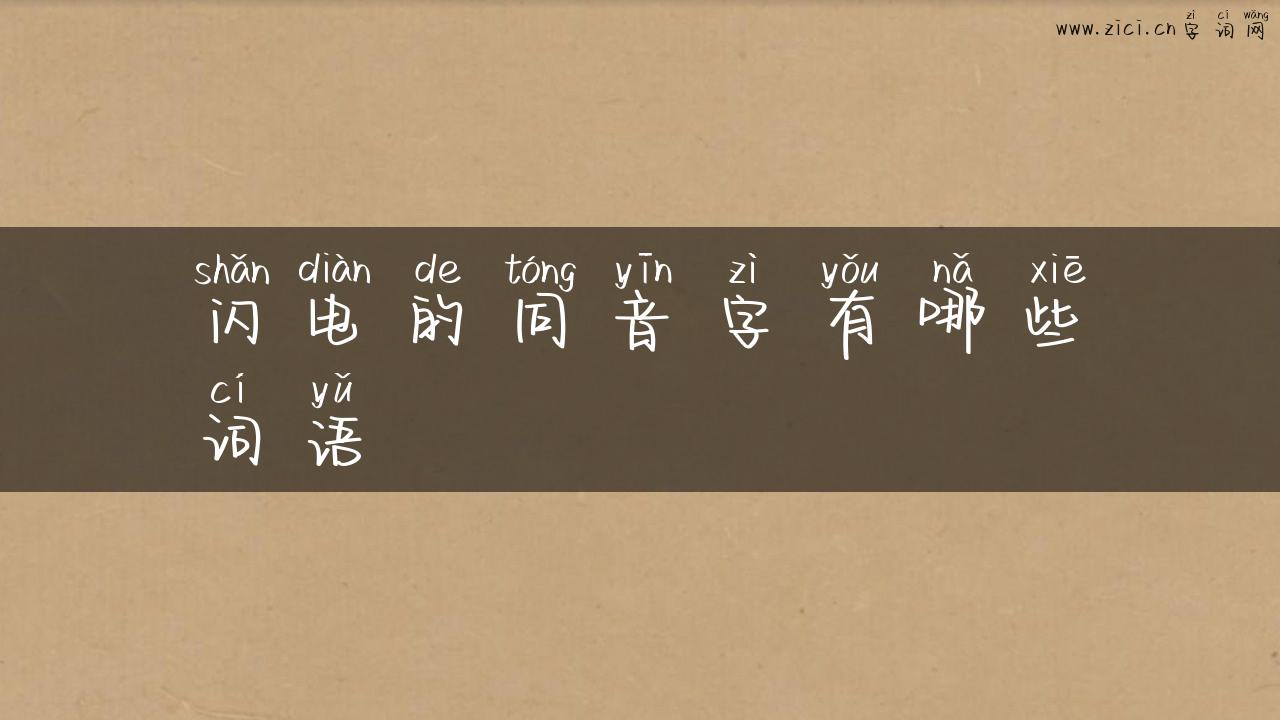 zì cí wǎng
www.zici.cn 字词网
shǎn diàn de tóng yīn zì yǒu nǎ xiē
闪电的同音字有哪些
cí yǔ
词语